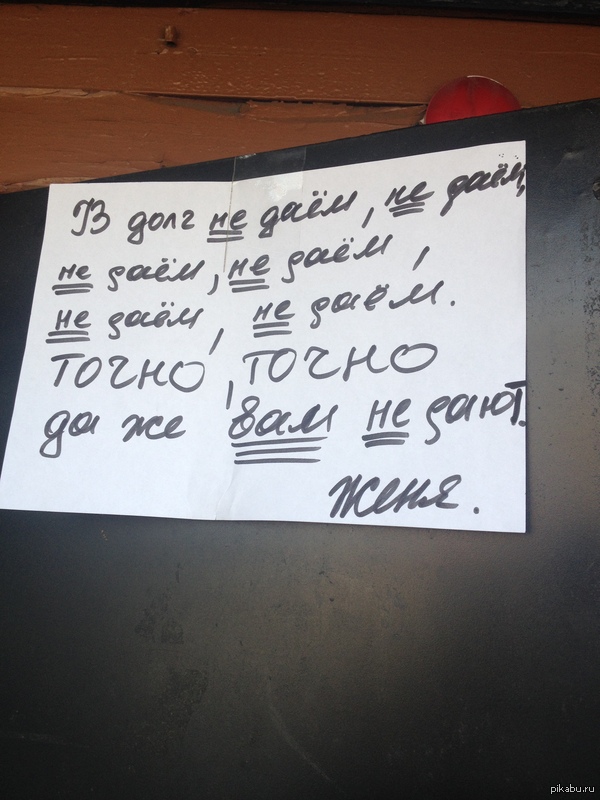 В долг не даём, не даём,
не даём, не даём,
не даём, не даём.
точно, точно
да же вам не дают.
Женя.
pikabu.ru